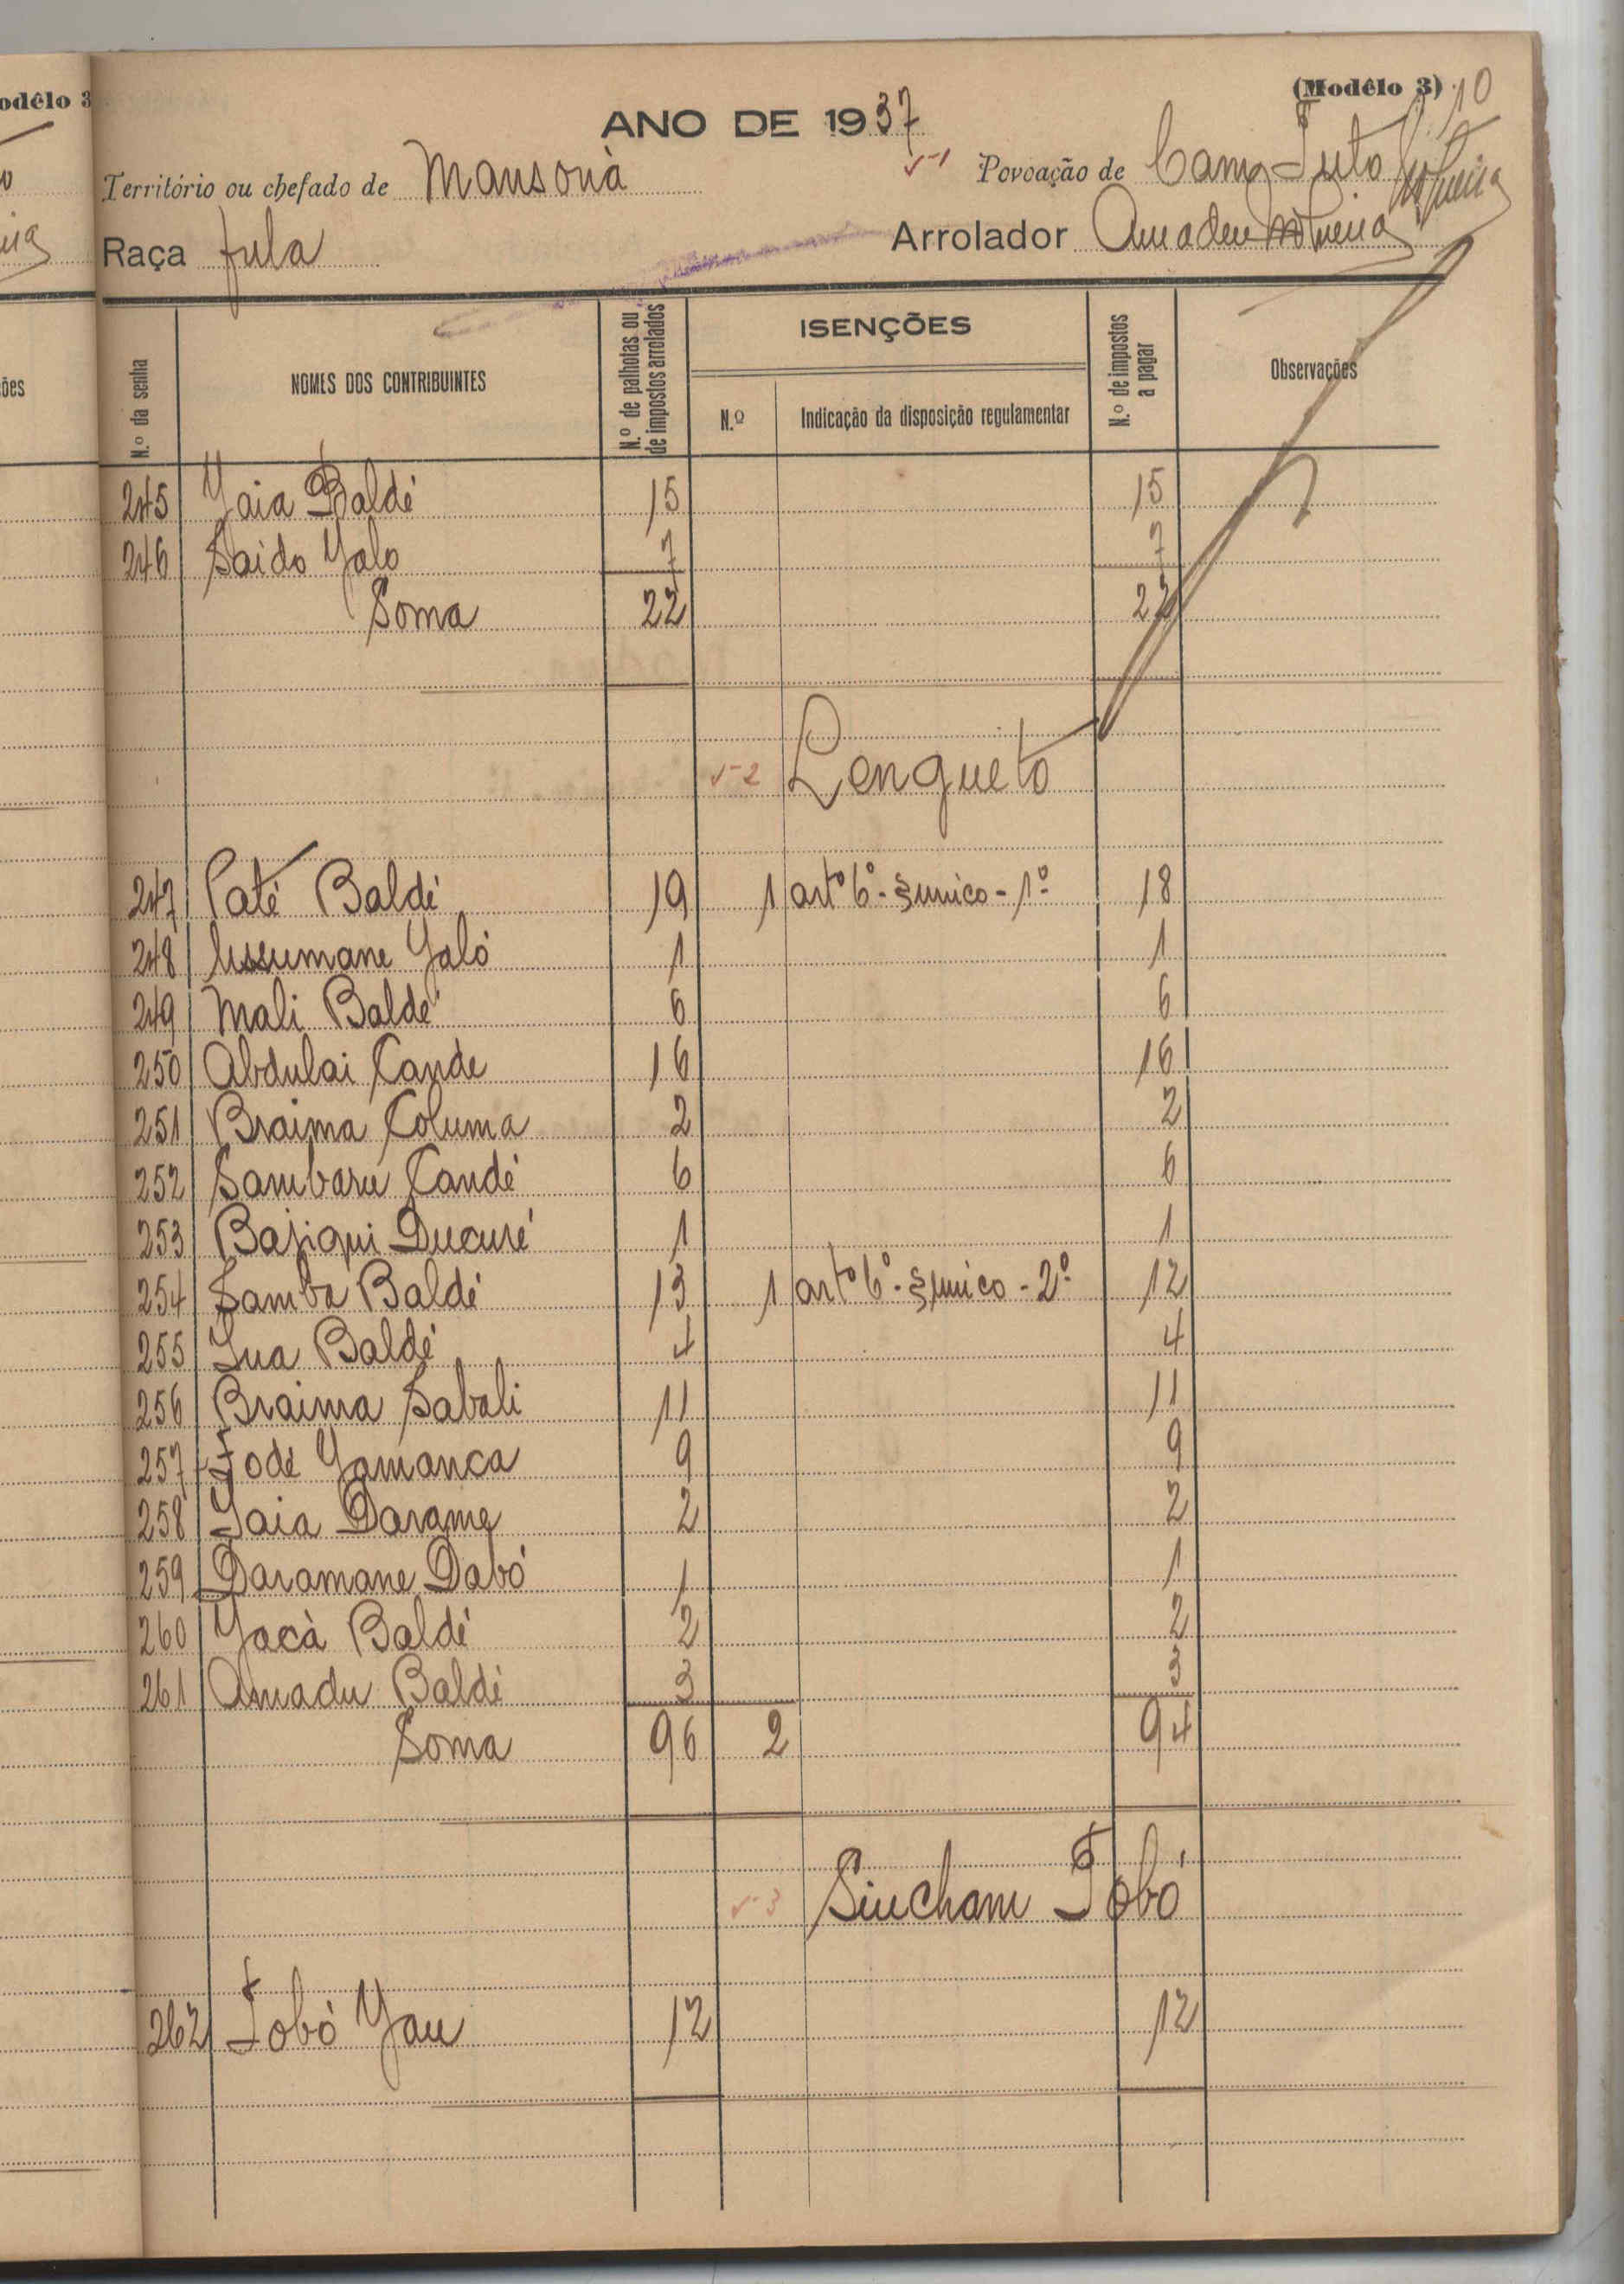 odêlo 3
(Modêlo 3)
10
ANO DE 1937
Território ou chefado de Mansonà
v-1 Povoação de Camg Juto
Raça fula
Arrolador Amadeu
N.º da senha
NOMES DOS CONTRIBUINTES
N.º de palhotas ou de impostos arrolados
ISENÇÕES
N.º
Indicação da disposição regulamentar
N.º de impostos a pagar
Observações
ões
245 Yaia Baldé 15 15
246 Saido Yalo 7 7
Soma 22 22
v-2 Lengueto
247 Paté Baldé 19 1 artº 6º - § unico - 1º 18
248 Ussumane Yaló 1 1
249 Mali Baldé 6 6
250 Abdulai Cande 16 16
251 Braima Columa 2 2
252 Sambaru Candé 6 6
253 Bajiqui Ducuré 1 1
254 Samba Baldé 13 1 artº 6º - § unico - 2º 12
255 Iua Baldé 4 4
256 Braima Sabali 11 11
257 Fode Yamanca 9 9
258 Yaia Darame 2 2
259 Daramane Dabó 1 1
260 Yacà Baldé 2 2
261 Amadu Baldé 3 3
Soma 96 2 94
v-3 Sincham Jobó
262 Jobó Yau 12 12